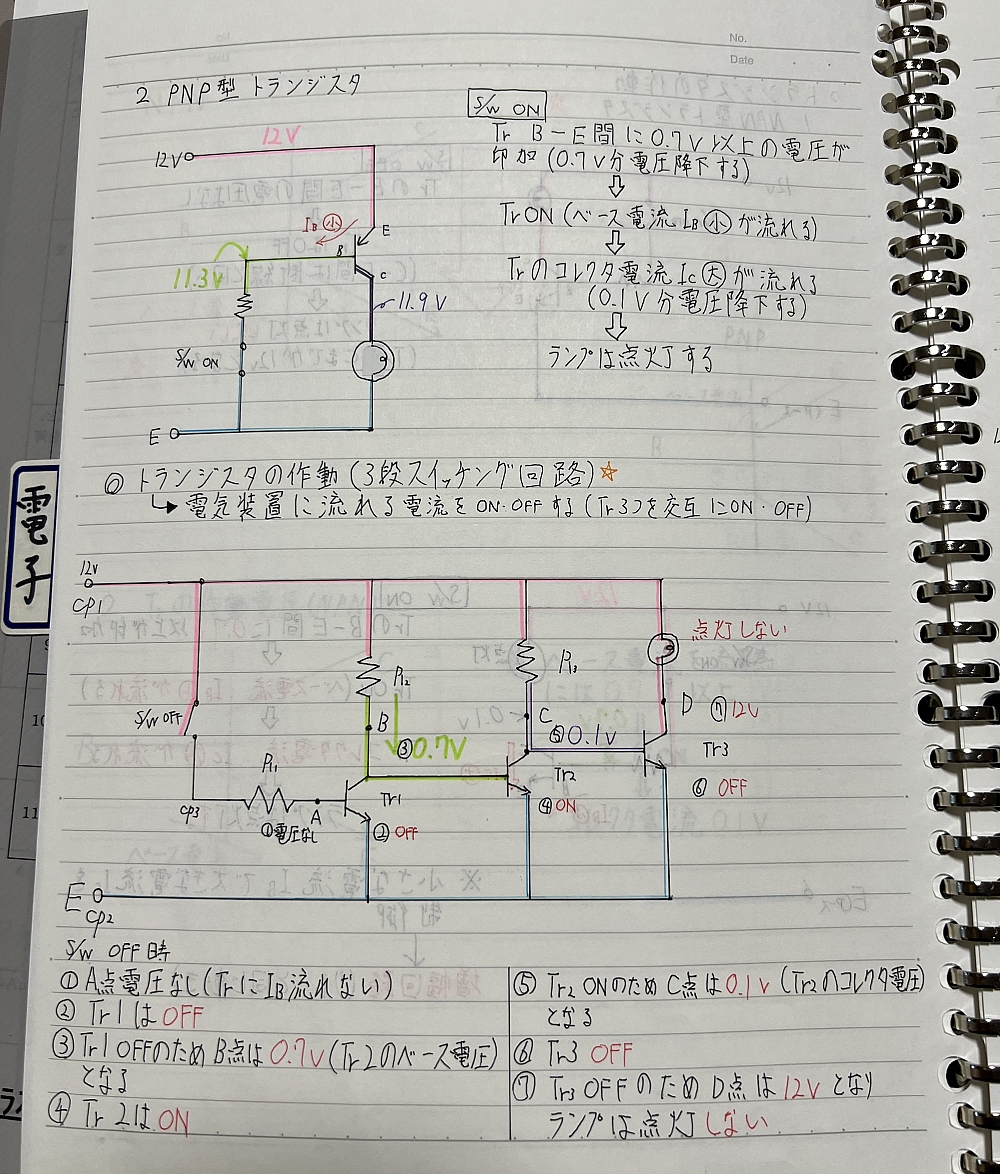 No.
Date
2 PNP型 トランジスタ
S/W ON
Tr B-E間に0.7V以上の電圧が
印加(0.7V分電圧降下する)
⇩
Tr ON (ベース電流 IB小が流れる)
⇩
Trのコレクタ電流 Ic大が流れる
(0.1V分電圧降下する)
⇩
ランプは点灯する
12V
12V
IB小
E
B
C
11.3V
11.9V
S/W ON
E
◎ トランジスタの作動(3段スイッチング回路)☆
↳ 電気装置に流れる電流をON・OFFする(Tr3つを交互にON・OFF)
電子
12V
CP1
点灯しない
S/W OFF
R2
R3
B
C
D
⑦12V
③0.7V
⑤0.1V
Tr3
R1
Tr2
⑥ OFF
CP3
A
Tr1
④ON
①電圧なし
②OFF
E
CP2
S/W OFF時
①A点電圧なし(TrにIB流れない)
② Tr1はOFF
③Tr1 OFFのためB点は0.7V(Tr2のベース電圧)
となる
④ Tr 2はON
⑤ Tr2 ONのためC点は0.1V (Tr2のコレクタ電圧)
となる
⑥ Tr3 OFF
⑦ Tr3 OFFのためD点は12Vとなり
ランプは点灯しない
10
11